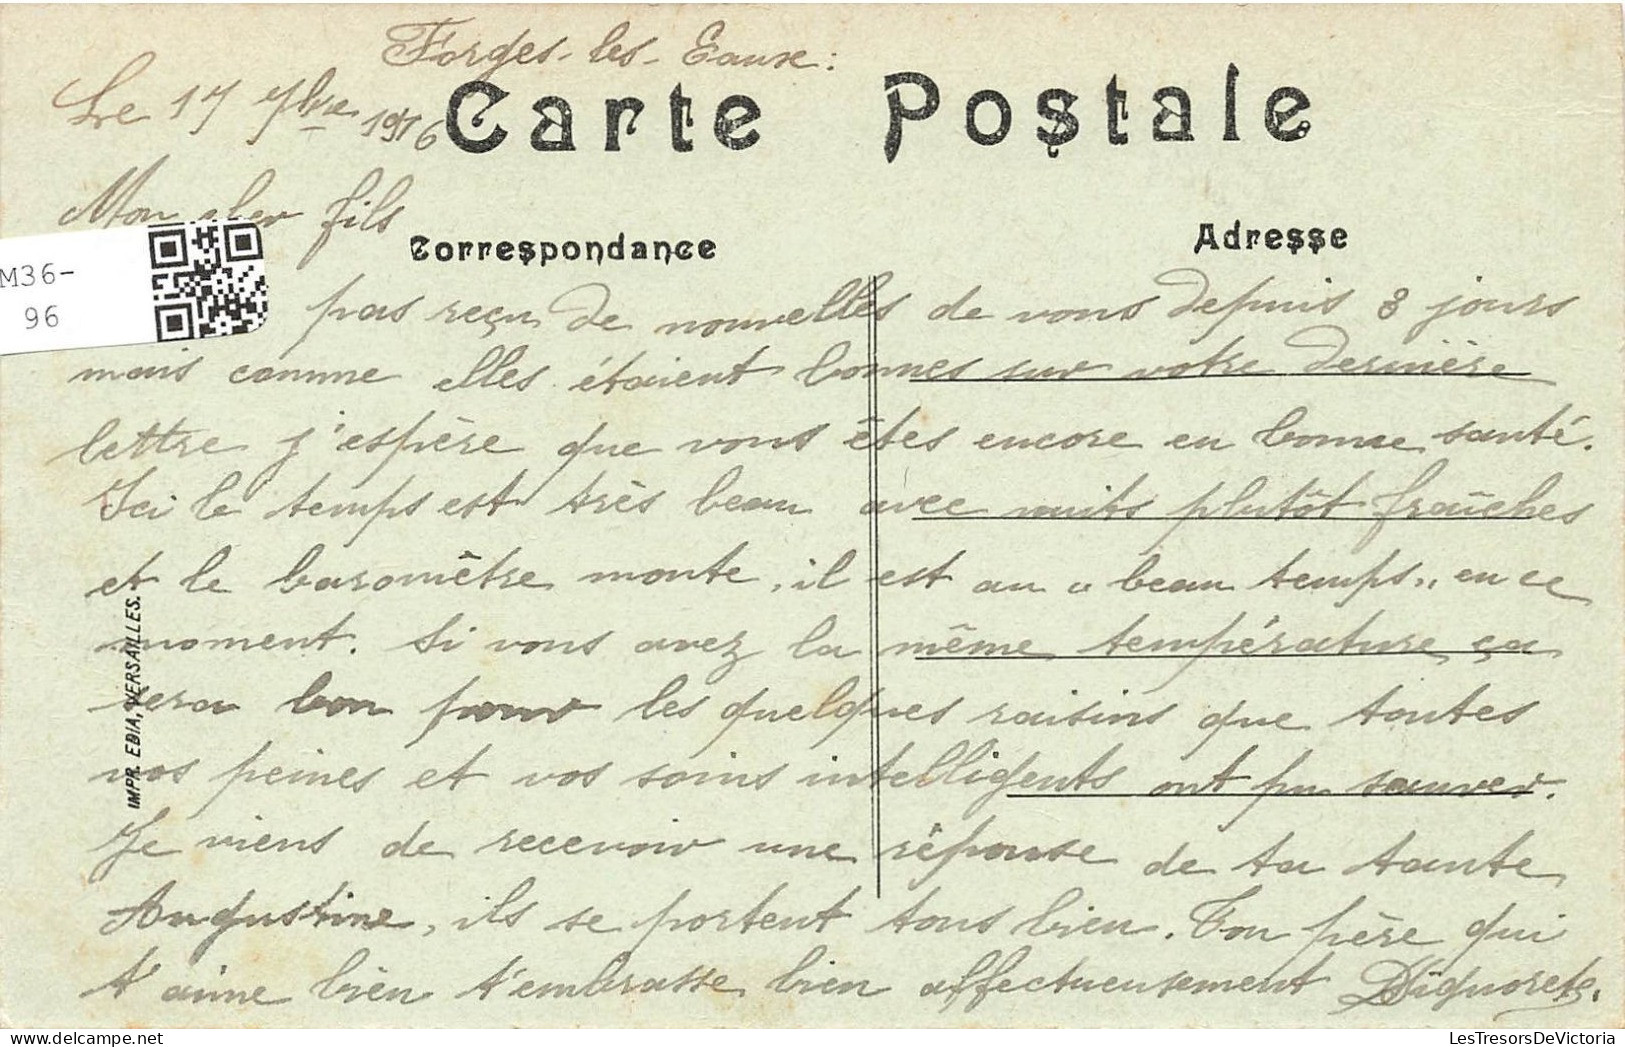 Forges-les-Eaux:
Le 17 7bre 1916
Carte Postale
Mon cher fils
Correspondance
Adresse
M36-
96
pas reçu de nouvelles de vous depuis 8 jours
mais comme elles étaient bonnes sur votre dernière
lettre j'espère que vous êtes encore en bonne santé.
Ici le temps est très beau avec nuits plutôt fraîches
et le baromètre monte, il est au "beau temps" en ce
moment. Si vous avez la même température ça
sera bon pour les quelques raisins que toutes
vos peines et vos soins intelligents ont pu sauver.
Je viens de recevoir une réponse de ta tante
Augustine, ils se portent tous bien. Ton père qui
t'aime bien t'embrasse bien affectueusement
IMPR. EDIA, VERSAILLES.
LesTresorsDeVictoria